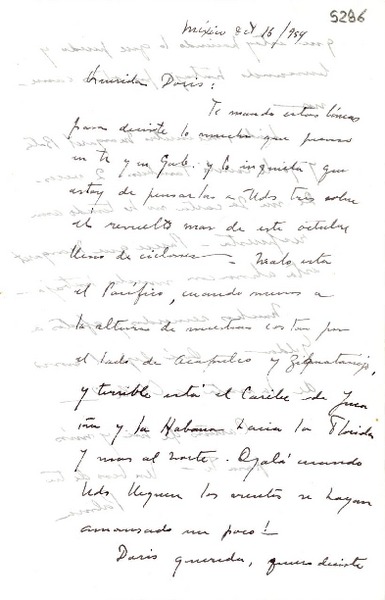 5286
México Oct 15/954
Querida Doris:
Te mando estas líneas
para decirte lo mucho que pienso
en ti y en Gab. y lo inquieta que
estoy de pensarlas a Uds tres sobre
el revuelto mar de este octubre
lleno de ciclones — Malo está
el Pacífico, cuando menos a
la altura de nuestras costas por
el lado de Acapulco y Zihuatanejo,
y terrible está el Caribe de Yuca
tán y la Habana hacia la Florida
y mas al norte. Ojalá cuando
Uds lleguen los vientos se hayan
amansado un poco!
Doris querida, quiero decirte